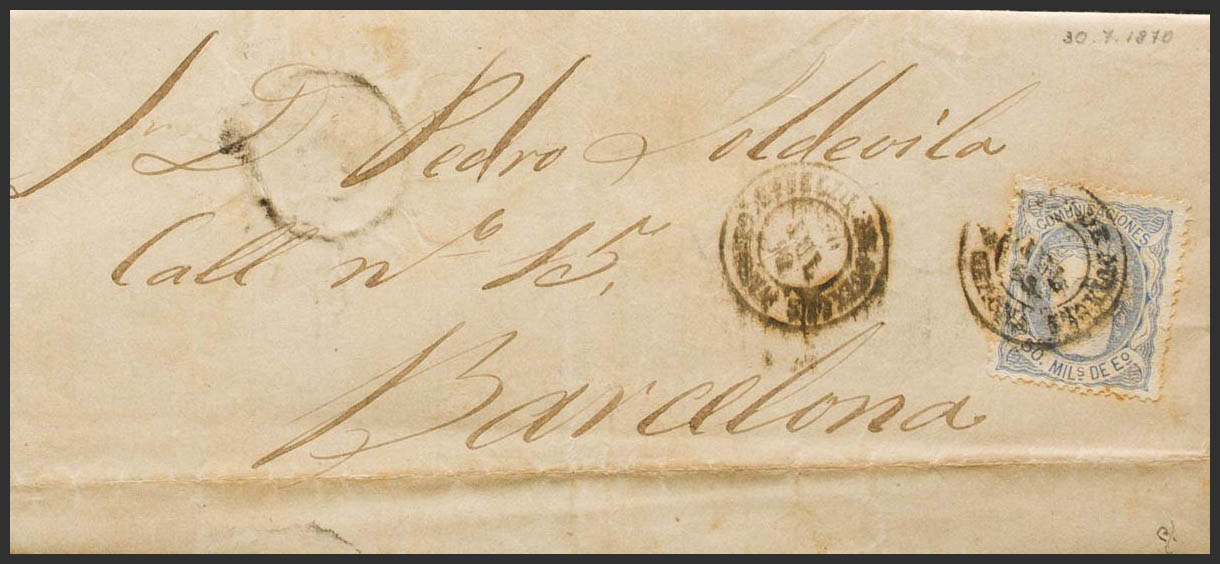 30.7.1870
Sr D Pedro Soldevila
Call nº 15,
Barcelona
COMUNICACIONES
50. MILS DE Eº